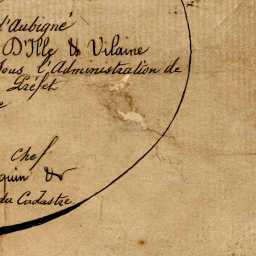 d'Aubigné
D'Ille & Vilaine
sous l'Administration de
Préfet
Chef
quin &
du Cadastre